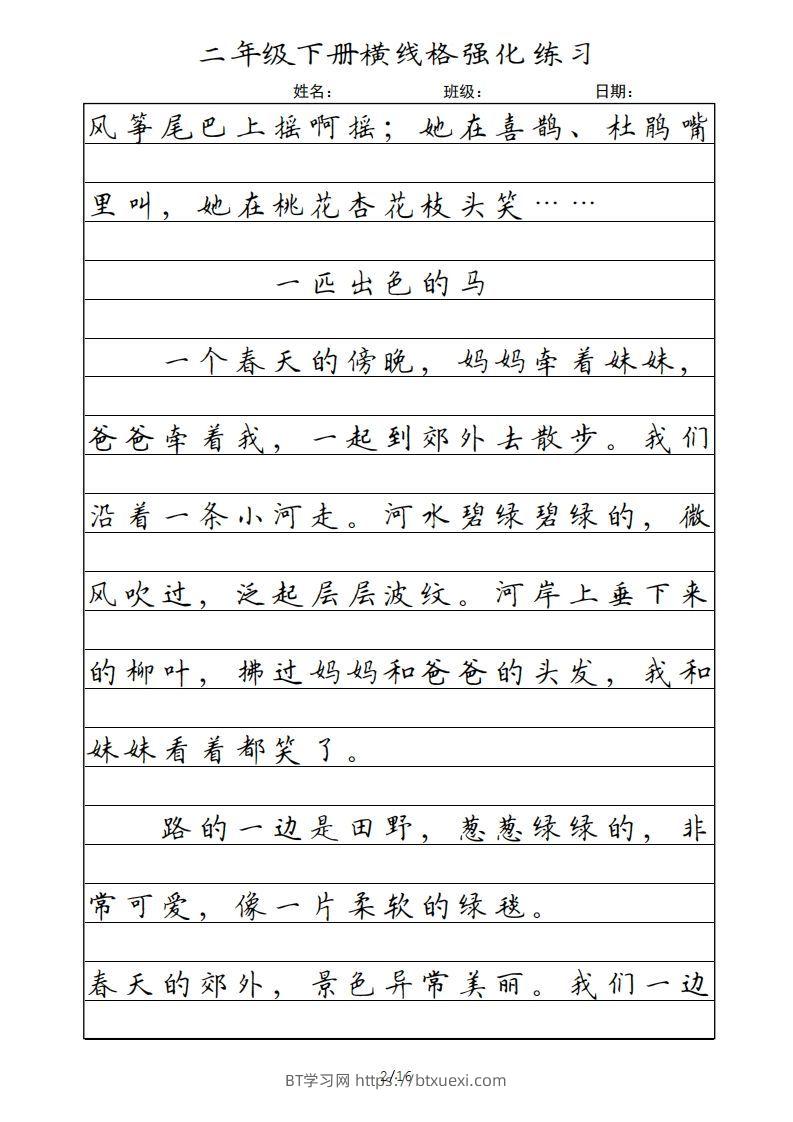 二年级下册横线格强化练习
姓名： 班级： 日期：
风筝尾巴上摇啊摇；她在喜鹊、杜鹃嘴
里叫，她在桃花杏花枝头笑……
一匹出色的马
一个春天的傍晚，妈妈牵着妹妹，
爸爸牵着我，一起到郊外去散步。我们
沿着一条小河走。河水碧绿碧绿的，微
风吹过，泛起层层波纹。河岸上垂下来
的柳叶，拂过妈妈和爸爸的头发，我和
妹妹看着都笑了。
路的一边是田野，葱葱绿绿的，非
常可爱，像一片柔软的绿毯。
春天的郊外，景色异常美丽。我们一边
2/16
BT学习网 https://btxuexi.com